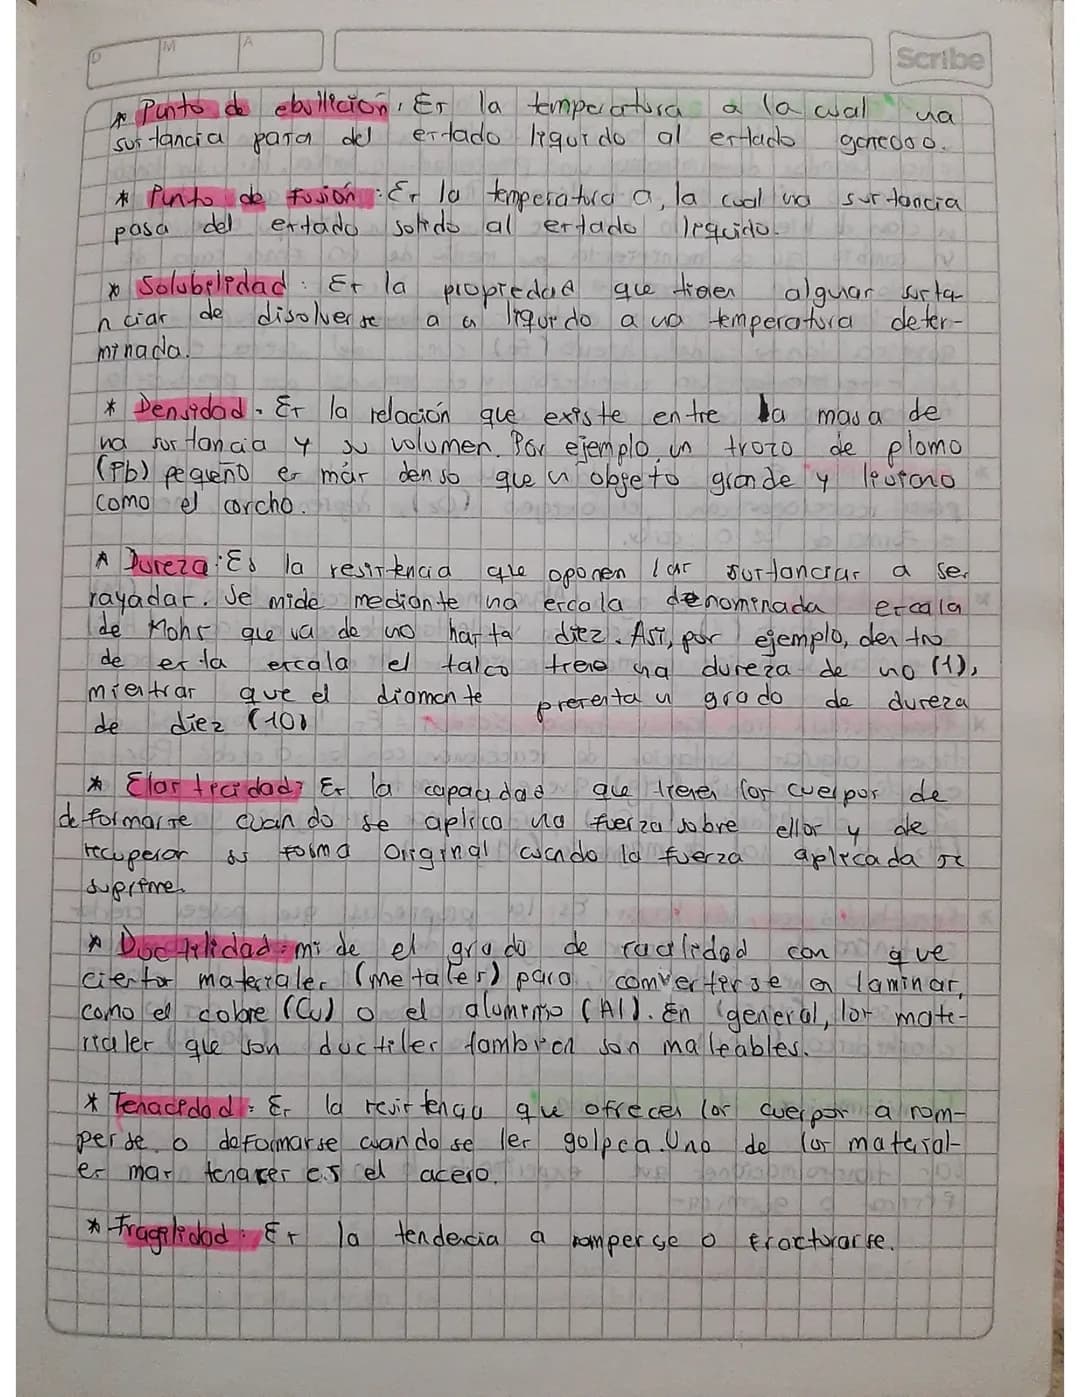 D M A Scribe
* Punto de ebullición: Es la temperatura a la cual una
sustancia pasa del estado liquido al estado gaseoso.
* Punto de fusión: Es la temperatura a la cual una sustancia
pasa del estado solido al estado liquido.
* Solubilidad: Es la propiedad que tienen algunas susta-
ncias de disolverse a un liquido a una temperatura deter-
minada.
* Densidad. Es la relación que existe entre la masa de
una sustancia y su volumen. Por ejemplo, un trozo de plomo
(Pb) pequeño es más denso que un objeto grande y liviano
como el corcho.
* Dureza: Es la resistencia que oponen las sustancias a ser
rayadas. Se mide mediante una escala denominada escala
de Mohs que va de uno hasta diez. Asi, por ejemplo, dentro
de esta escala el talco tiene una dureza de uno (1),
mientras que el diamante presenta un grado de dureza
de diez (10)
* Elasticidad: Es la capacidad que tienen los cuerpos de
deformarse cuando se aplica una fuerza sobre ellos y de
recuperar su forma original cuando la fuerza aplicada se
suprime.
* Ductilidad: mide el grado de facilidad con que
ciertos materiales (metales) para convertirse en laminas,
como el cobre (Cu) o el aluminio (Al). En general, los mate-
riales que son ductiles tambien son maleables.
* Tenacidad: Es la resistencia que ofrecen los cuerpos a rom-
perse o deformarse cuando se les golpea. Uno de los material-
es mas tenaces es el acero.
* Fragilidad: Es la tendencia a romperse o fracturarse.